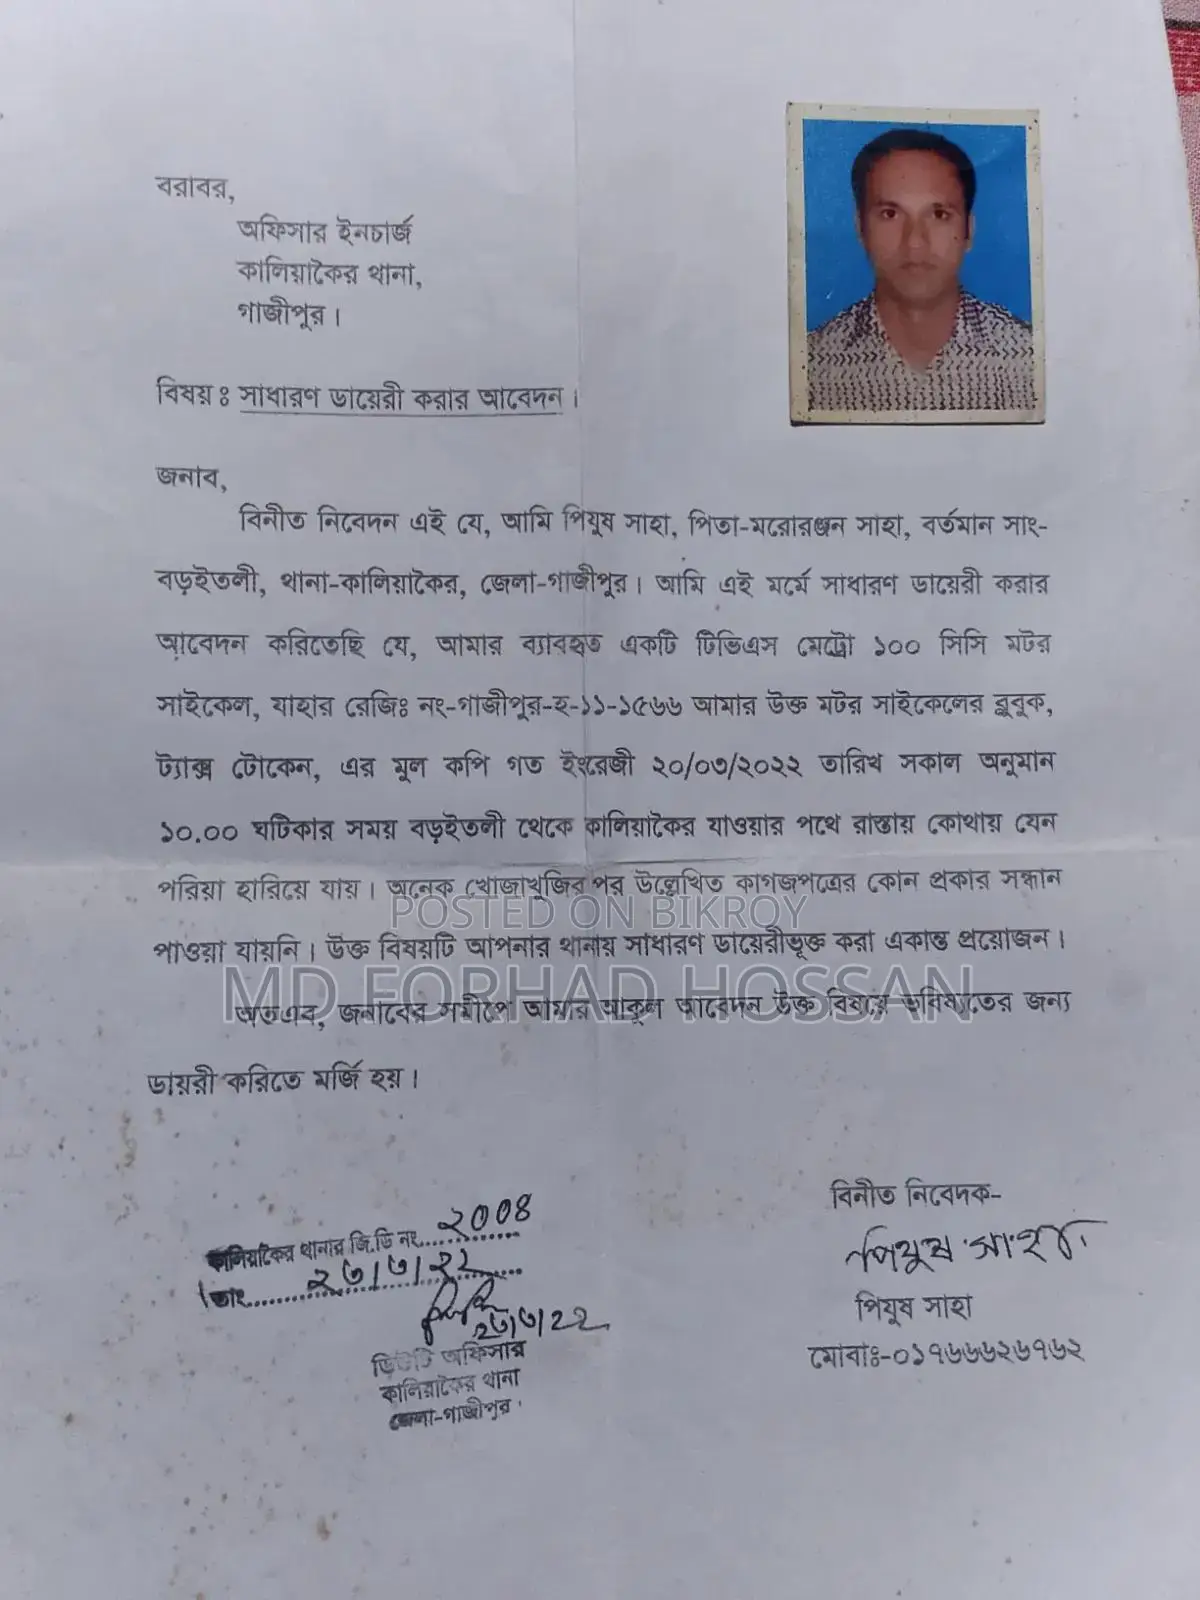 বরাবর,
অফিসার ইনচার্জ
কালিয়াকৈর থানা,
গাজীপুর।
বিষয়ঃ সাধারণ ডায়েরী করার আবেদন।
জনাব,
বিনীত নিবেদন এই যে, আমি পিযুষ সাহা, পিতা-মরোরঞ্জন সাহা, বর্তমান সাং-
বড়ইতলী, থানা-কালিয়াকৈর, জেলা-গাজীপুর। আমি এই মর্মে সাধারণ ডায়েরী করার
আবেদন করিতেছি যে, আমার ব্যাবহৃত একটি টিভিএস মেট্রো ১০০ সিসি মটর
সাইকেল, যাহার রেজিঃ নং-গাজীপুর-হ-১১-১৫৬৬ আমার উক্ত মটর সাইকেলের ব্লুবুক,
ট্যাক্স টোকেন, এর মুল কপি গত ইংরেজী ২০/০৩/২০২২ তারিখ সকাল অনুমান
১০.০০ ঘটিকার সময় বড়ইতলী থেকে কালিয়াকৈর যাওয়ার পথে রাস্তায় কোথায় যেন
পরিয়া হারিয়ে যায়। অনেক খোজাখুজির পর উল্লেখিত কাগজপত্রের কোন প্রকার সন্ধান
POSTED ON BIKROY
পাওয়া যায়নি। উক্ত বিষয়টি আপনার থানায় সাধারণ ডায়েরীভূক্ত করা একান্ত প্রয়োজন।
MD FORHAD HOSSAN
অতএব, জনাবের সমীপে আমার আকুল আবেদন উক্ত বিষয়ে ভবিষ্যতের জন্য
ডায়রী করিতে মর্জি হয়।
বিনীত নিবেদক-
পিযুষ সাহা
পিযুষ সাহা
মোবাঃ-০১৭৬৬৬২৬৭৬২
কালিয়াকৈর থানার জি.ডি নং......২০০৪
তাং..........২৩/৩/২২
২৩/৩/২২
ডিউটি অফিসার
কালিয়াকৈর থানা
জেলা-গাজীপুর।